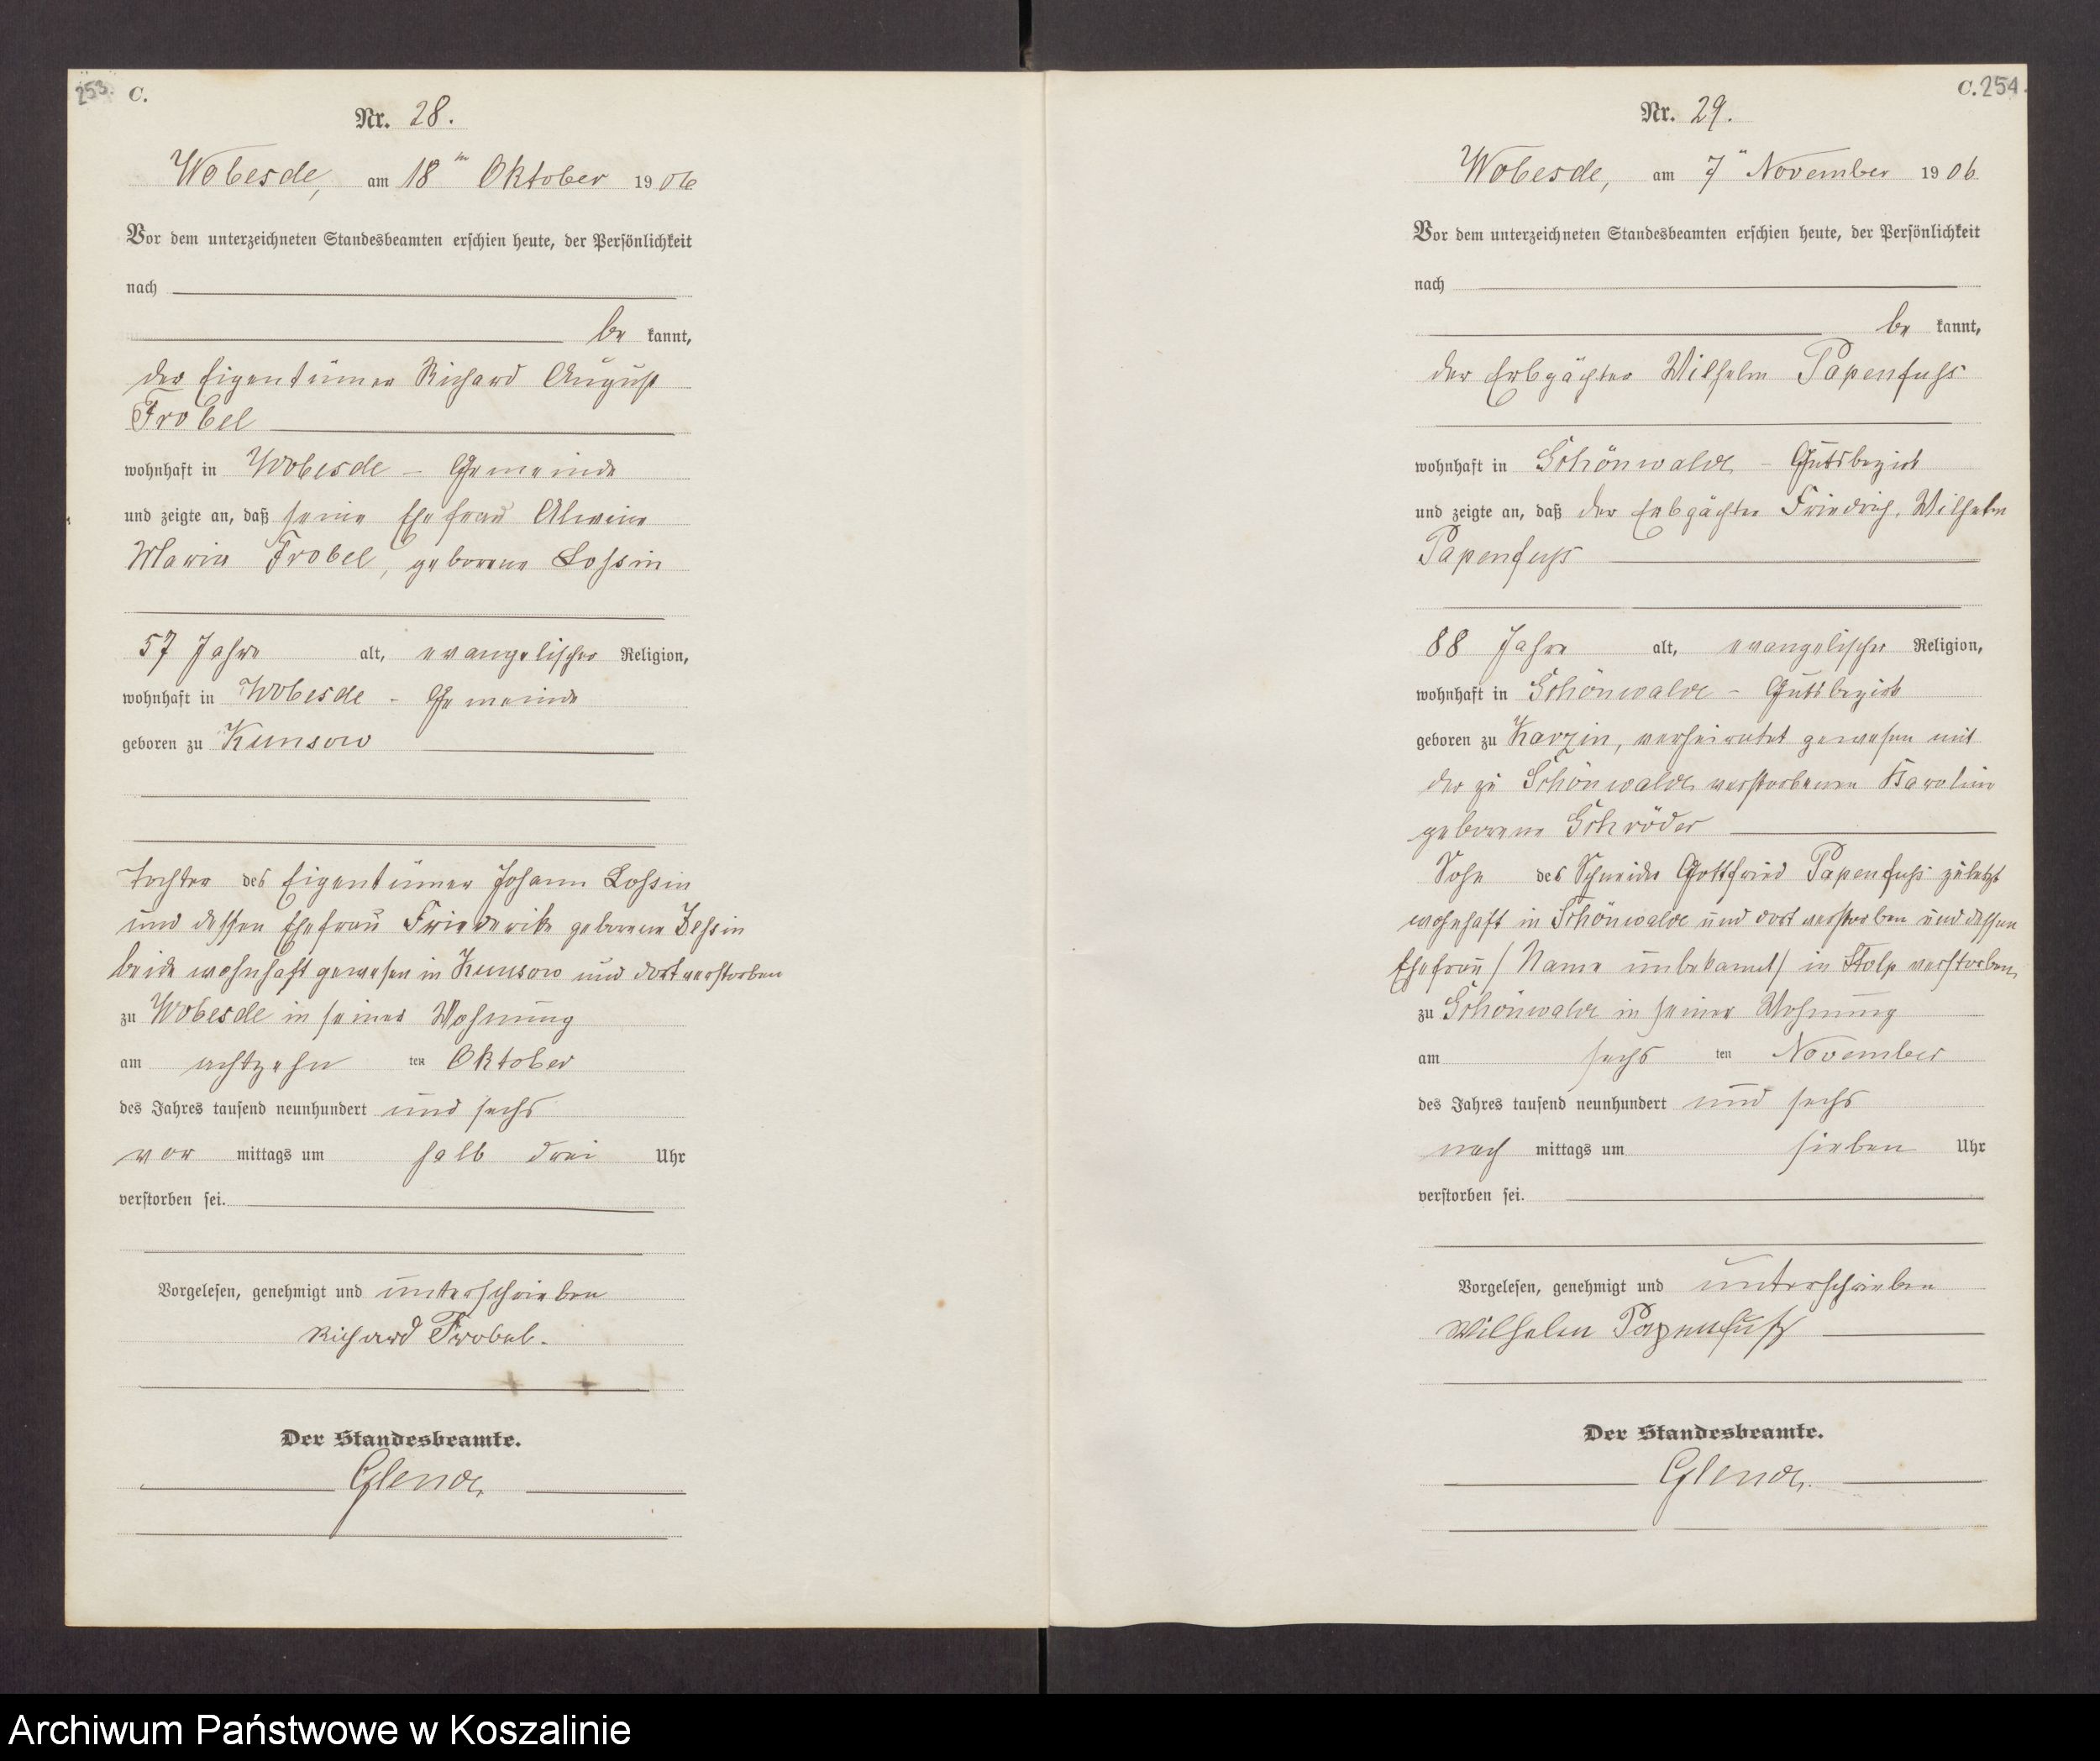 253. C.
Nr. 28.
Wobesde, am 18ten Oktober 1906
Vor dem unterzeichneten Standesbeamten erschien heute, der Persönlichkeit
nach
be kannt,
der Eigentümer Richard August
Frobel
wohnhaft in Wobesde - Gemeinde
und zeigte an, daß seine Ehefrau Alwine
Marie Frobel, geborene Lossin
57 Jahre alt, evangelischer Religion,
wohnhaft in Wobesde - Gemeinde
geboren zu Kunsow
Tochter des Eigentümer Johann Lossin
und dessen Ehefrau Friederike geborene Zessin
beide wohnhaft gewesen in Kunsow und dort verstorben
zu Wobesde in seiner Wohnung
am achtzehn ten Oktober
des Jahres tausend neunhundert und sechs
vor mittags um halb drei Uhr
verstorben sei.
Vorgelesen, genehmigt und unterschrieben
Richard Frobel.
Der Standesbeamte.
C. 254.
Nr. 29.
Wobesde, am 7" November 1906
Vor dem unterzeichneten Standesbeamten erschien heute, der Persönlichkeit
nach
be kannt,
der Erbpächter Wilhelm Papenfuss
wohnhaft in Schönwalde - Gutsbezirk
und zeigte an, daß der Erbpächter Friedrich, Wilhelm
Papenfuss
88 Jahre alt, evangelischer Religion,
wohnhaft in Schönwalde - Gutsbezirk
geboren zu Karzin, verheiratet gewesen mit
der zu Schönwalde verstorbenen Karoline
geborene Schröder
Sohn des Schneider Gottfried Papenfuss zuletzt
wohnhaft in Schönwalde und dort verstorben und dessen
Ehefrau / Name unbekannt / in Stolp verstorben,
zu Schönwalde in seiner Wohnung
am sechs ten November
des Jahres tausend neunhundert und sechs
nach mittags um sieben Uhr
verstorben sei.
Vorgelesen, genehmigt und unterschrieben
Wilhelm Papenfuß
Der Standesbeamte.
Archiwum Państwowe w Koszalinie